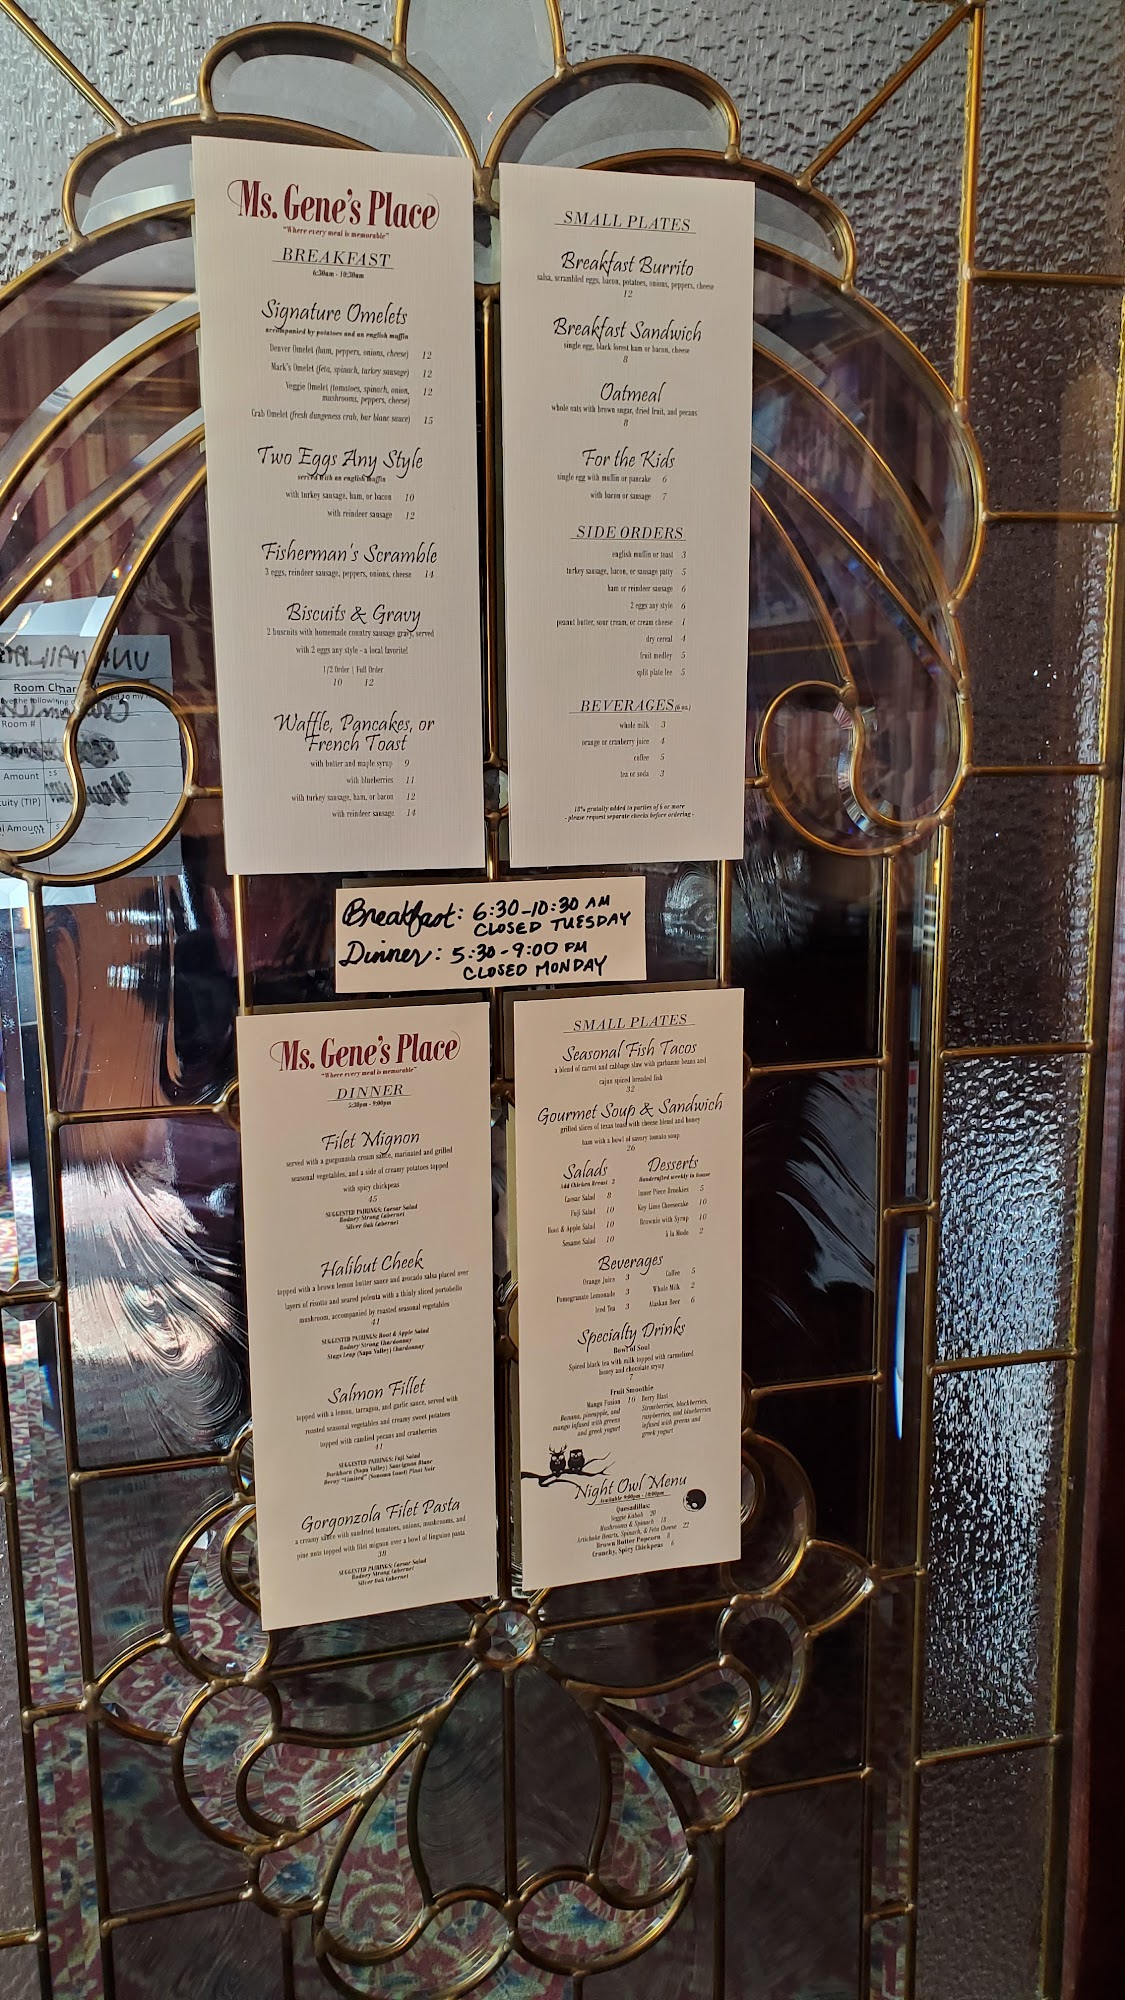 Ms. Gene's Place
"Where every meal is memorable"
BREAKFAST
6:30am - 10:30am
Signature Omelets
accompanied by potatoes and an english muffin
Denver Omelet (ham, peppers, onions, cheese) 12
Mark's Omelet (feta, spinach, turkey sausage) 12
Veggie Omelet (tomatoes, spinach, onion, 12
mushrooms, peppers, cheese)
Crab Omelet (fresh dungeness crab, bur blanc sauce) 15
Two Eggs Any Style
served with an english muffin
with turkey sausage, ham, or bacon 10
with reindeer sausage 12
Fisherman's Scramble
3 eggs, reindeer sausage, peppers, onions, cheese 14
Biscuits & Gravy
2 buscuits with homemade country sausage gravy, served
with 2 eggs any style - a local favorite!
1/2 Order | Full Order
10 12
Waffle, Pancakes, or
French Toast
with butter and maple syrup 9
with blueberries 11
with turkey sausage, ham, or bacon 12
with reindeer sausage 14
SMALL PLATES
Breakfast Burrito
salsa, scrambled eggs, bacon, potatoes, onions, peppers, cheese
12
Breakfast Sandwich
single egg, black forest ham or bacon, cheese
8
Oatmeal
whole oats with brown sugar, dried fruit, and pecans
8
For the Kids
single egg with muffin or pancake 6
with bacon or sausage 7
SIDE ORDERS
english muffin or toast 3
turkey sausage, bacon, or sausage patty 5
ham or reindeer sausage 6
2 eggs any style 6
peanut butter, sour cream, or cream cheese 1
dry cereal 4
fruit medley 5
split plate fee 5
BEVERAGES (6 oz.)
whole milk 3
orange or cranberry juice 4
coffee 5
tea or soda 3
18% gratuity added to parties of 6 or more
- please request separate checks before ordering -
Breakfast: 6:30-10:30 AM
CLOSED TUESDAY
Dinner: 5:30-9:00 PM
CLOSED MONDAY
Ms. Gene's Place
"Where every meal is memorable"
DINNER
5:30pm - 9:00pm
Filet Mignon
served with a gorgonzola cream sauce, marinated and grilled
seasonal vegetables, and a side of creamy potatoes topped
with spicy chickpeas
45
SUGGESTED PAIRINGS: Caesar Salad
Rodney Strong Cabernet
Silver Oak Cabernet
Halibut Cheek
topped with a brown lemon butter sauce and avocado salsa placed over
layers of risotto and seared polenta with a thinly sliced portobello
mushroom, accompanied by roasted seasonal vegetables
41
SUGGESTED PAIRINGS: Root & Apple Salad
Rodney Strong Chardonnay
Stags Leap (Napa Valley) Chardonnay
Salmon Fillet
topped with a lemon, tarragon, and garlic sauce, served with
roasted seasonal vegetables and creamy sweet potatoes
topped with candied pecans and cranberries
41
SUGGESTED PAIRINGS: Fuji Salad
Duckhorn (Napa Valley) Sauvignon Blanc
"Limited" (Sonoma Coast) Pinot Noir
Gorgonzola Filet Pasta
a creamy sauce with sundried tomatoes, onions, mushrooms, and
pine nuts topped with filet mignon over a bowl of linguine pasta
38
SUGGESTED PAIRINGS: Caesar Salad
Rodney Strong Cabernet
Silver Oak Cabernet
SMALL PLATES
Seasonal Fish Tacos
a blend of carrot and cabbage slaw with garbanzo beans and
cajun spiced breaded fish
32
Gourmet Soup & Sandwich
grilled slices of texas toast with cheese blend and honey
ham with a bowl of savory tomato soup
26
Salads
Add Chicken Breast 2
Caesar Salad 8
Fuji Salad 10
Root & Apple Salad 10
Sesame Salad 10
Desserts
Handcrafted weekly in house
Inner Piece Brookies 5
Key Lime Cheesecake 10
Brownie with Syrup 10
à la Mode 2
Beverages
Orange Juice 3
Pomegranate Lemonade 3
Iced Tea 3
Coffee 5
Whole Milk 2
Alaskan Beer 6
Specialty Drinks
Bowl of Soul
Spiced black tea with milk topped with carmelized
honey and chocolate syrup
7
Fruit Smoothie
Mango Fusion 10 Berry Blast
Banana, pineapple, and
mango infused with greens
and greek yogurt
Strawberries, blackberries,
raspberries, and blueberries
infused with greens and
greek yogurt
Night Owl Menu
Available 9:00pm - 10:00pm
Quesadillas:
Veggie Kabob 20
Mushrooms & Spinach 18
Artichoke Hearts, Spinach, & Feta Cheese 22
Brown Butter Popcorn 8
Crunchy, Spicy Chickpeas 6
Room Char
Room #
Amount $
(TIP)
Amount $